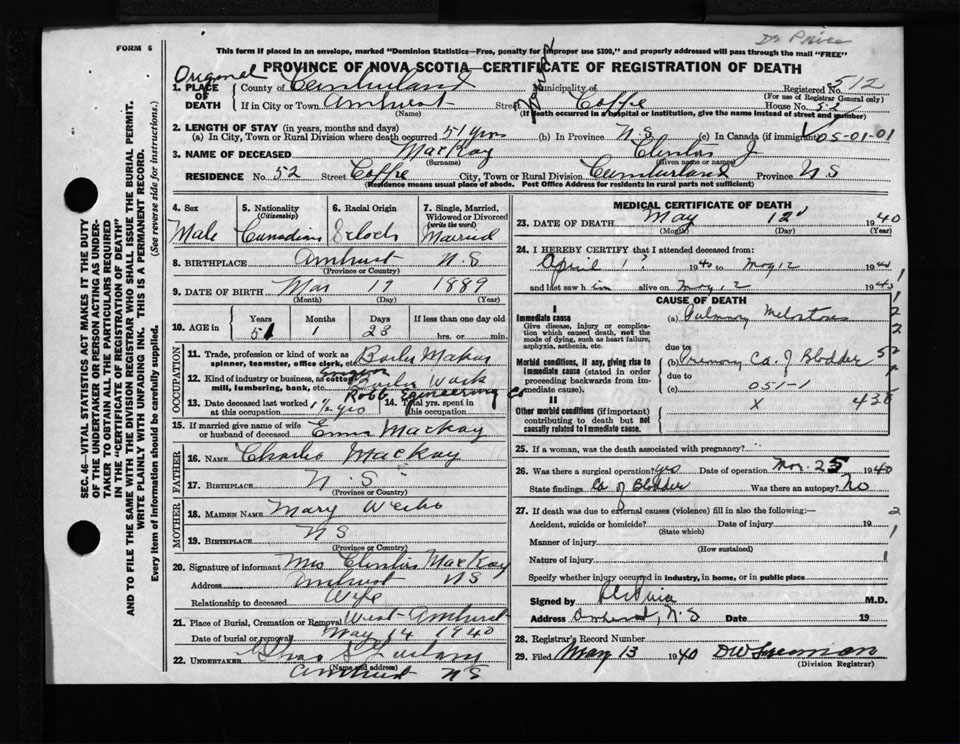 Dr Price
FORM 6
This form if placed in an envelope, marked "Dominion Statistics—Free, penalty for improper use $300," and properly addressed will pass through the mail "FREE"
PROVINCE OF NOVA SCOTIA—CERTIFICATE OF REGISTRATION OF DEATH
Original
1. PLACE OF DEATH
County of Cumberland Municipality of Registered No. 512
(For use of Registrar General only)
If in City or Town Amherst Street Coffee House No. 52
(Name) (If death occurred in a hospital or institution, give the name instead of street and number)
2. LENGTH OF STAY (in years, months and days)
(a) In City, Town or Rural Division where death occurred 51 yrs (b) In Province N.S. (c) In Canada (if immigrant) 05-01-01
3. NAME OF DECEASED MacKay Clinton J
(Surname) (Given name or names)
RESIDENCE No. 52 Street Coffee City, Town or Rural Division Cumberland Province N S
(Residence means usual place of abode. Post Office Address for residents in rural parts not sufficient)
4. Sex Male
5. Nationality (Citizenship) Canadian
6. Racial Origin Scotch
7. Single, Married, Widowed or Divorced (write the word) Married
8. BIRTHPLACE Amherst N.S
(Province or Country)
9. DATE OF BIRTH Mar 19 1889
(Month) (Day) (Year)
10. AGE in Years Months Days If less than one day old
51 1 23 hrs. or min.
OCCUPATION
11. Trade, profession or kind of work as spinner, teamster, office clerk, etc. Boiler Maker
12. Kind of industry or business, as cotton mill, lumbering, bank, etc. Boiler Work
Robb Engineering Co
13. Date deceased last worked at this occupation 1½ yrs 14. Total yrs. spent in this occupation
15. If married give name of wife or husband of deceased Emma MacKay
FATHER
16. NAME Charlie MacKay
17. BIRTHPLACE N.S
(Province or Country)
MOTHER
18. MAIDEN NAME Mary
19. BIRTHPLACE NS
(Province or Country)
20. Signature of informant Mrs Clinton MacKay
Address Amherst NS
Relationship to deceased Wife
21. Place of Burial, Cremation or Removal West Amherst
Date of burial or removal May 14 1940
22. UNDERTAKER Chas S
(Name and address)
Amherst NS
MEDICAL CERTIFICATE OF DEATH
23. DATE OF DEATH May 12 1940
(Month) (Day) (Year)
24. I HEREBY CERTIFY that I attended deceased from:
April 1? 1940 to May 12 1940
and last saw him alive on May 12 1940
CAUSE OF DEATH
I
Immediate cause
Give disease, injury or complication which caused death, not the mode of dying, such as heart failure, asphyxia, asthenia, etc.
(a) Pulmonary
due to
Morbid conditions, if any, giving rise to immediate cause (stated in order proceeding backwards from immediate cause).
(b) Primary Ca. of Bladder 52
due to
(c) 051-1
II
Other morbid conditions (if important) contributing to death but not causally related to immediate cause.
X
25. If a woman, was the death associated with pregnancy?
26. Was there a surgical operation? yes Date of operation Mar. 25 1940
State findings Ca of Bladder Was there an autopsy? No
27. If death was due to external causes (violence) fill in also the following:—
Accident, suicide or homicide? Date of injury 19
(State which)
Manner of injury
(How sustained)
Nature of injury
Specify whether injury occurred in industry, in home, or in public place
Signed by Price M.D.
Address Amherst, N.S Date 19
28. Registrar's Record Number
29. Filed May 13 1940 DW Freeman
(Division Registrar)
SEC. 46—VITAL STATISTICS ACT MAKES IT THE DUTY
OF THE UNDERTAKER OR PERSON ACTING AS UNDER-
TAKER TO OBTAIN ALL THE PARTICULARS REQUIRED
IN THE "CERTIFICATE OF REGISTRATION OF DEATH"
AND TO FILE THE SAME WITH THE DIVISION REGISTRAR WHO SHALL ISSUE THE BURIAL PERMIT.
WRITE PLAINLY WITH UNFADING INK. THIS IS A PERMANENT RECORD.
Every item of information should be carefully supplied. (See reverse side for instructions.)